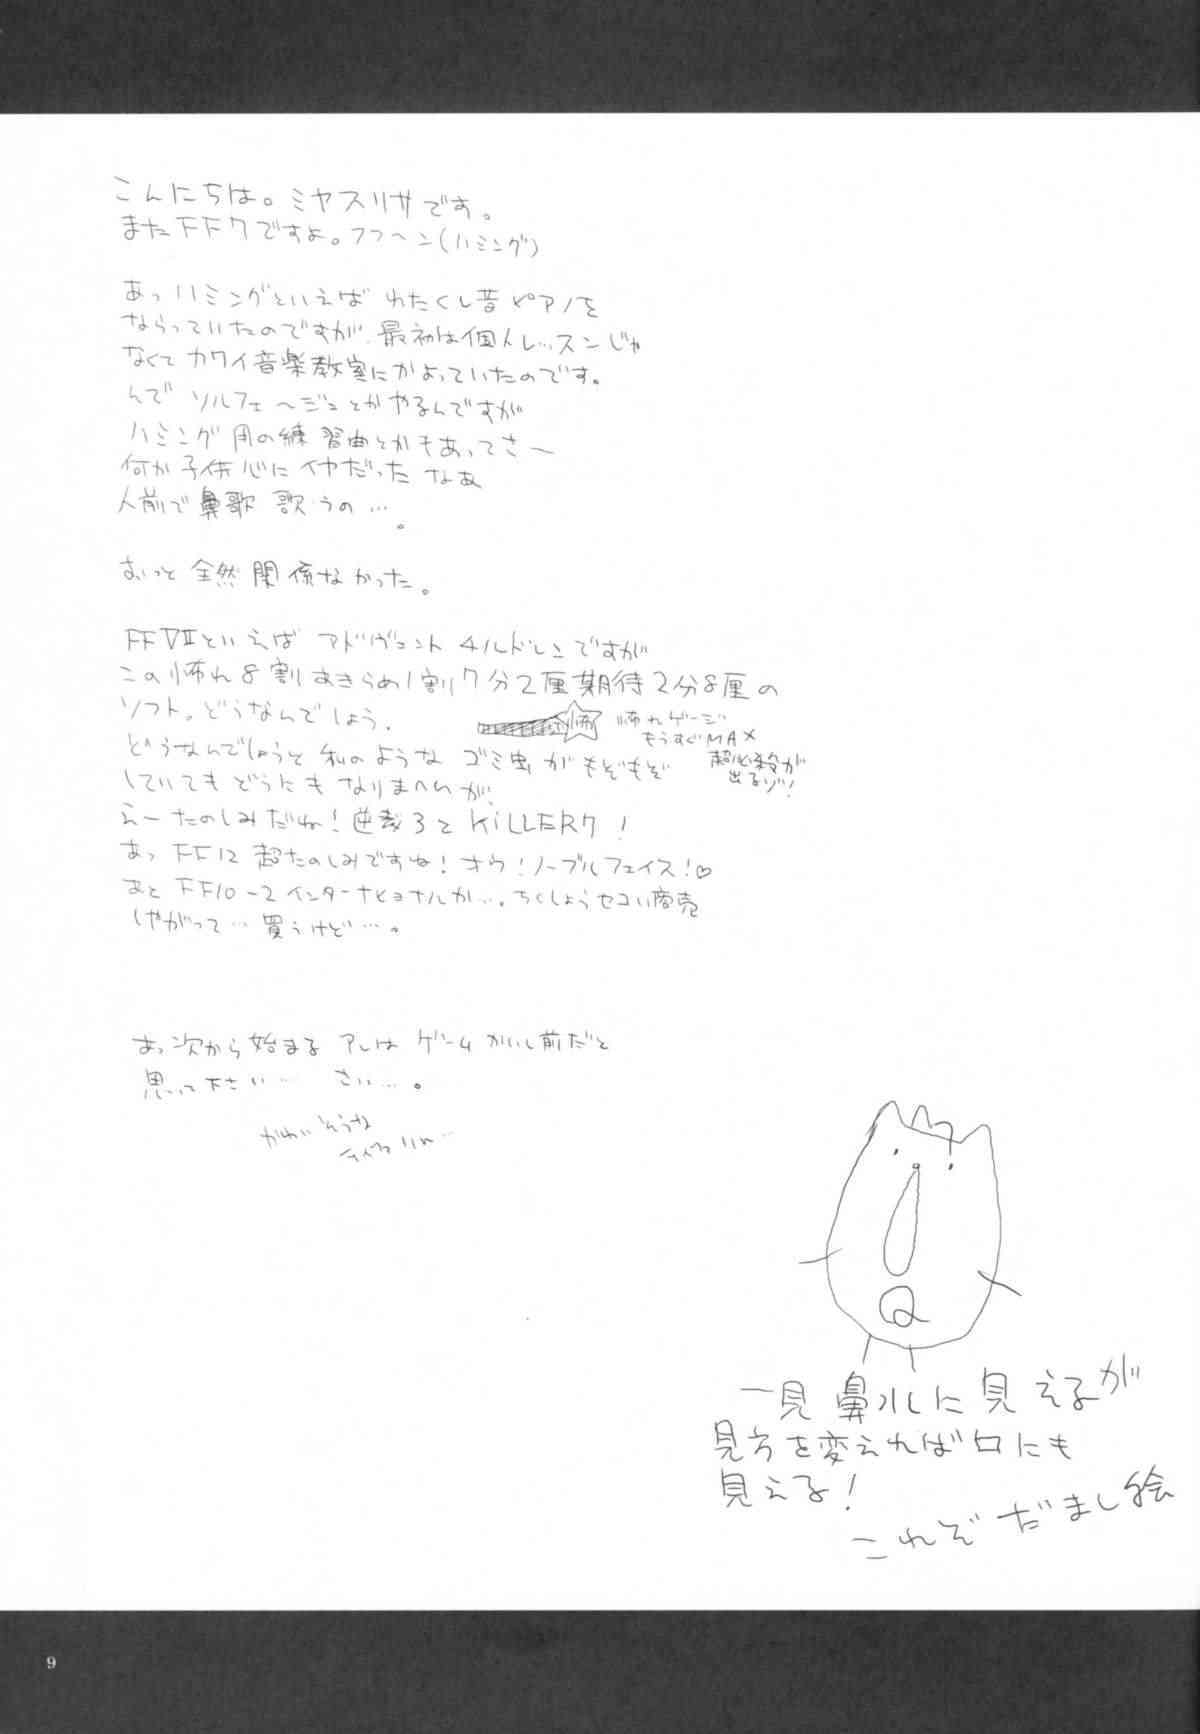 こんにちは。ミヤスリサです。
またFF7ですよ。フフヘン(ハミング)
あっハミングといえば わたくし昔ピアノを
ならっていたのですが、最初は個人レッスンじゃ
なくてカワイ音楽教室にかよっていたのです。
んで ソルフェ〜ジュとかやるんですが
ハミング用の練習曲とかもあってさ〜
何か子供心にイヤだったなあ
人前で鼻歌歌うの…。
おっと全然関係なかった。
FFVIIといえば アドヴェント チルドレンですが
この怖れ8割あきらめ1割7分2厘期待2分8厘の
ソフト。どうなんでしょう。
怖
怖れゲージ
もうすぐMAX
超必殺が
出るゾ!
どうなんでしょうと 私のような ゴミ虫がもぞもぞ
していてもどうにもなりまへんが、
えーたのしみだね!逆裁3とKiLLER7!
あっFF12 超たのしみですね!オウ!ノーブルフェイス!♡
あとFF10-2インターナショナルか…。ちくしょうセコい商売
しやがって…買うけど…。
あっ次から始まるアレはゲームかいし前だと
思って下さい… さい…。
かわいそうな
ティファ
一見鼻水に見えるが
見方を変えれば口にも
見える!
これぞだまし絵
9